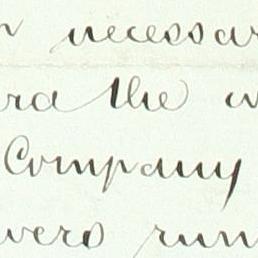 necessar
the
Company
vers run